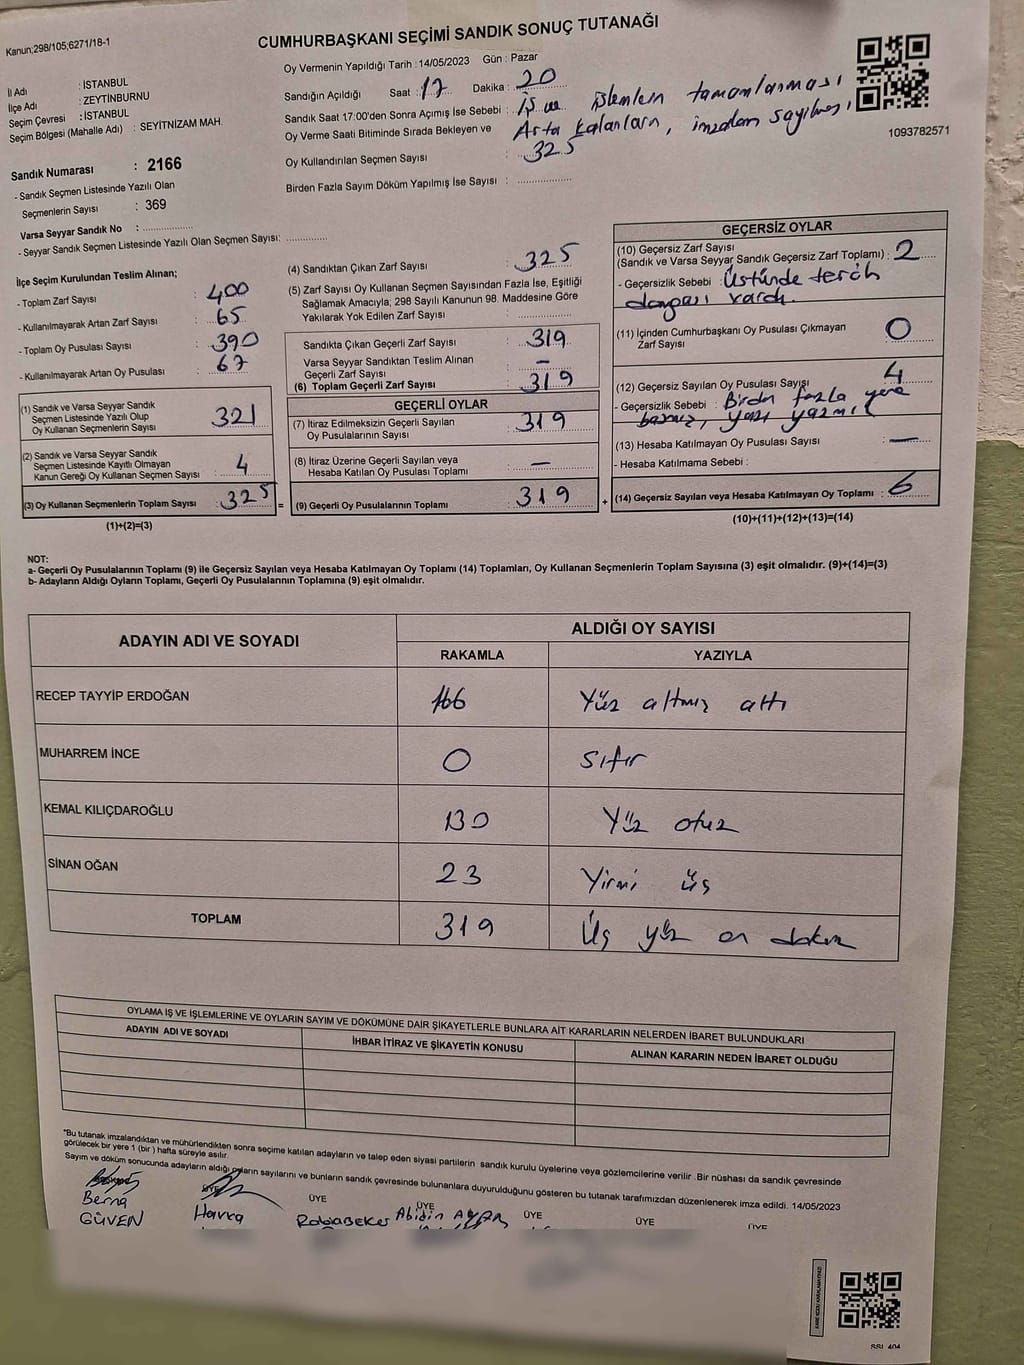 Kanun;298/105;6271/18-1
CUMHURBAŞKANI SEÇİMİ SANDIK SONUÇ TUTANAĞI
Oy Vermenin Yapıldığı Tarih : 14/05/2023 Gün : Pazar
İl Adı : İSTANBUL
İlçe Adı : ZEYTİNBURNU
Seçim Çevresi : İSTANBUL
Seçim Bölgesi (Mahalle Adı) : SEYİTNİZAM MAH.
Sandığın Açıldığı Saat : 17 Dakika : 20
Sandık Saat 17:00'den Sonra Açımış İse Sebebi : İş ve işlemlerin tamamlanması
Oy Verme Saati Bitiminde Sırada Bekleyen ve Arta kalanların, imzaların sayılması
Oy Kullandırılan Seçmen Sayısı : 325
Birden Fazla Sayım Döküm Yapılmış İse Sayısı :
1093782571
Sandık Numarası : 2166
- Sandık Seçmen Listesinde Yazılı Olan
Seçmenlerin Sayısı : 369
Varsa Seyyar Sandık No :
- Seyyar Sandık Seçmen Listesinde Yazılı Olan Seçmen Sayısı:
İlçe Seçim Kurulundan Teslim Alınan;
- Toplam Zarf Sayısı : 400
- Kullanılmayarak Artan Zarf Sayısı : 65
- Toplam Oy Pusulası Sayısı : 390
- Kullanılmayarak Artan Oy Pusulası : 67
(1) Sandık ve Varsa Seyyar Sandık
Seçmen Listesinde Yazılı Olup
Oy Kullanan Seçmenlerin Sayısı : 321
(2) Sandık ve Varsa Seyyar Sandık
Seçmen Listesinde Kayıtlı Olmayan
Kanun Gereği Oy Kullanan Seçmen Sayısı : 4
(3) Oy Kullanan Seçmenlerin Toplam Sayısı : 325 =
(1)+(2)=(3)
(4) Sandıktan Çıkan Zarf Sayısı : 325
(5) Zarf Sayısı Oy Kullanan Seçmen Sayısından Fazla İse, Eşitliği
Sağlamak Amacıyla; 298 Sayılı Kanunun 98. Maddesine Göre
Yakılarak Yok Edilen Zarf Sayısı :
Sandıkta Çıkan Geçerli Zarf Sayısı : 319
Varsa Seyyar Sandıktan Teslim Alınan
Geçerli Zarf Sayısı : —
(6) Toplam Geçerli Zarf Sayısı : 319
GEÇERLİ OYLAR
(7) İtiraz Edilmeksizin Geçerli Sayılan
Oy Pusulalarının Sayısı : 319
(8) İtiraz Üzerine Geçerli Sayılan veya
Hesaba Katılan Oy Pusulası Toplamı : —
(9) Geçerli Oy Pusulalarının Toplamı : 319 +
GEÇERSİZ OYLAR
(10) Geçersiz Zarf Sayısı
(Sandık ve Varsa Seyyar Sandık Geçersiz Zarf Toplamı) : 2
- Geçersizlik Sebebi : Üstünde tercih
damgası vardı.
(11) İçinden Cumhurbaşkanı Oy Pusulası Çıkmayan
Zarf Sayısı : 0
(12) Geçersiz Sayılan Oy Pusulası Sayısı : 4
- Geçersizlik Sebebi : Birden fazla yere
basmış, yazı yazmış
(13) Hesaba Katılmayan Oy Pusulası Sayısı : —
- Hesaba Katılmama Sebebi :
(14) Geçersiz Sayılan veya Hesaba Katılmayan Oy Toplamı : 6
(10)+(11)+(12)+(13)=(14)
NOT:
a- Geçerli Oy Pusulalarının Toplamı (9) ile Geçersiz Sayılan veya Hesaba Katılmayan Oy Toplamı (14) Toplamları, Oy Kullanan Seçmenlerin Toplam Sayısına (3) eşit olmalıdır. (9)+(14)=(3)
b- Adayların Aldığı Oyların Toplamı, Geçerli Oy Pusulalarının Toplamına (9) eşit olmalıdır.
ADAYIN ADI VE SOYADI ALDIĞI OY SAYISI
RAKAMLA YAZIYLA
RECEP TAYYİP ERDOĞAN 166 Yüz altmış altı
MUHARREM İNCE 0 sıfır
KEMAL KILIÇDAROĞLU 130 Yüz otuz
SİNAN OĞAN 23 Yirmi üç
TOPLAM 319 Üç yüz on dokuz
OYLAMA İŞ VE İŞLEMLERİNE VE OYLARIN SAYIM VE DÖKÜMÜNE DAİR ŞİKAYETLERLE BUNLARA AİT KARARLARIN NELERDEN İBARET BULUNDUKLARI
ADAYIN ADI VE SOYADI İHBAR İTİRAZ VE ŞİKAYETİN KONUSU ALINAN KARARIN NEDEN İBARET OLDUĞU
*Bu tutanak imzalandıktan ve mühürlendikten sonra seçime katılan adayların ve talep eden siyasi partilerin sandık kurulu üyelerine veya gözlemcilerine verilir .Bir nüshası da sandık çevresinde
görülecek bir yere 1 (bir ) hafta süreyle asılır.
Sayım ve döküm sonucunda adayların aldığı oyların sayılarını ve bunların sandık çevresinde bulunanlara duyurulduğunu gösteren bu tutanak tarafımızdan düzenlenerek imza edildi. 14/05/2023
ÜYE ÜYE ÜYE ÜYE ÜYE ÜYE
Berna
GÜVEN Havva Abidin
SSI_404